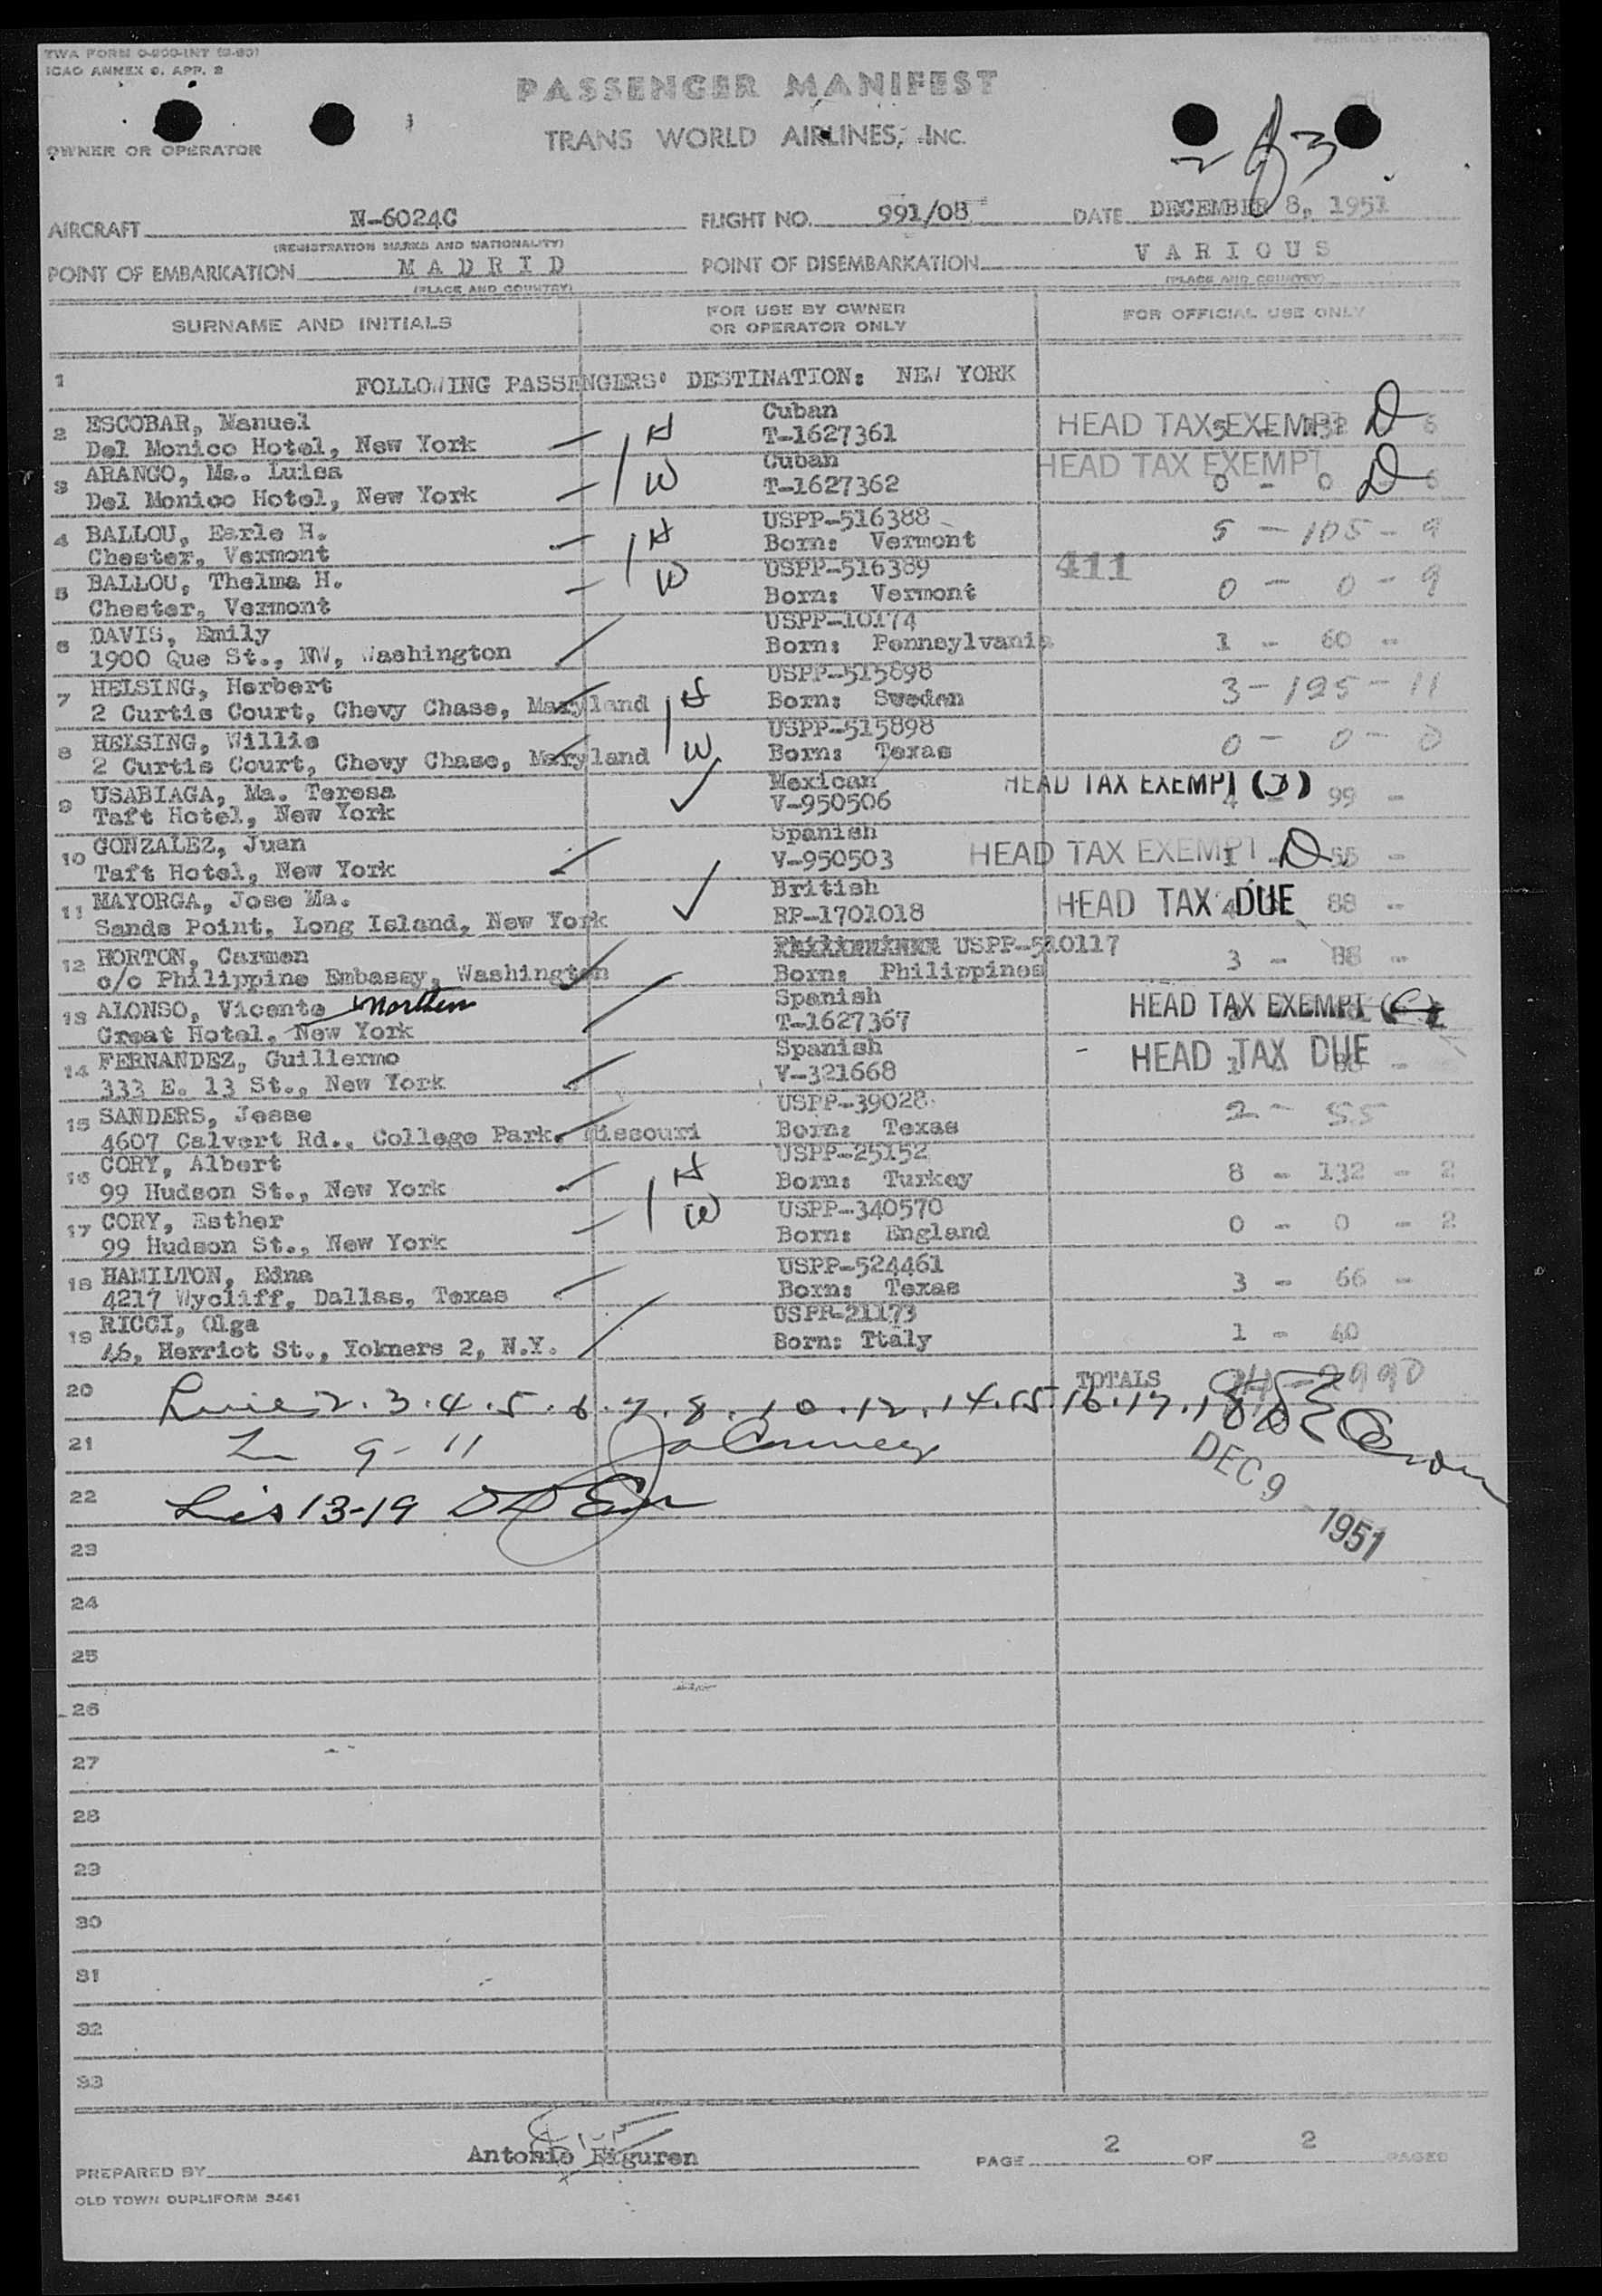 TWA FORM O-200-INT
ICAO ANNEX 9. APP. 2
PASSENGER MANIFEST
OWNER OR OPERATOR
TRANS WORLD AIRLINES, INC.
AIRCRAFT N-6024C FLIGHT NO. 991/08 DATE DECEMBER 8, 1951
(REGISTRATION MARKS AND NATIONALITY)
POINT OF EMBARKATION MADRID POINT OF DISEMBARKATION VARIOUS
(PLACE AND COUNTRY) (PLACE AND COUNTRY)
SURNAME AND INITIALS FOR USE BY OWNER OR OPERATOR ONLY FOR OFFICIAL USE ONLY
1 FOLLOWING PASSENGERS' DESTINATION: NEW YORK
2 ESCOBAR, Manuel Cuban
Del Monico Hotel, New York H T-1627361 HEAD TAX EXEMPT D 6
3 ARANGO, Ma. Luisa Cuban HEAD TAX EXEMPT
Del Monico Hotel, New York W T-1627362 0 - 0 D 6
4 BALLOU, Earle H. USPP-516388
Chester, Vermont H Born: Vermont 5 - 105 - 9
5 BALLOU, Thelma H. USPP-516389 411
Chester, Vermont W Born: Vermont 0 - 0 - 9
6 DAVIS, Emily USPP-10174
1900 Que St., NW, Washington Born: Pennsylvania 1 - 60 -
7 HELSING, Herbert USPP-515898
2 Curtis Court, Chevy Chase, Maryland H Born: Sweden 3 - 125 - 11
8 HELSING, Willie USPP-515898
2 Curtis Court, Chevy Chase, Maryland W Born: Texas 0 - 0 - 0
9 USABIAGA, Ma. Teresa Mexican HEAD TAX EXEMPT (D)
Taft Hotel, New York V-950506 4 - 99 -
10 GONZALEZ, Juan Spanish
Taft Hotel, New York V-950503 HEAD TAX EXEMPT D 55 -
11 MAYORGA, Jose Ma. British
Sands Point, Long Island, New York RP-1701018 HEAD TAX DUE 4 88 -
12 HORTON, Carmen USPP-510117
c/o Philippine Embassy, Washington Born: Philippines 3 - 88 -
13 ALONSO, Vicente Northern Spanish
Great Hotel, New York T-1627367 HEAD TAX EXEMPT
14 FERNANDEZ, Guillermo Spanish
333 E. 13 St., New York V-321668 HEAD TAX DUE
15 SANDERS, Jesse USPP-39028
4607 Calvert Rd., College Park, Missouri Born: Texas 2 - 55
16 CORY, Albert USPP-25152
99 Hudson St., New York H Born: Turkey 8 - 132 - 2
17 CORY, Esther USPP-340570
99 Hudson St., New York W Born: England 0 - 0 - 2
18 HAMILTON, Edna USPP-524461
4217 Wycliff, Dallas, Texas Born: Texas 3 - 66 -
19 RICCI, Olga USPP-21173
46, Herriot St., Yokners 2, N.Y. Born: Ttaly 1 - 40
TOTALS
20 2.3.4.5.6.7.8.10.12.14.15.16.17.18
21 9-11
DEC 9 1951
22 13-19
23
24
25
26
27
28
29
30
31
32
33
PREPARED BY Antonio Eiguren PAGE 2 OF 2 PAGES
OLD TOWN DUPLIFORM 3441